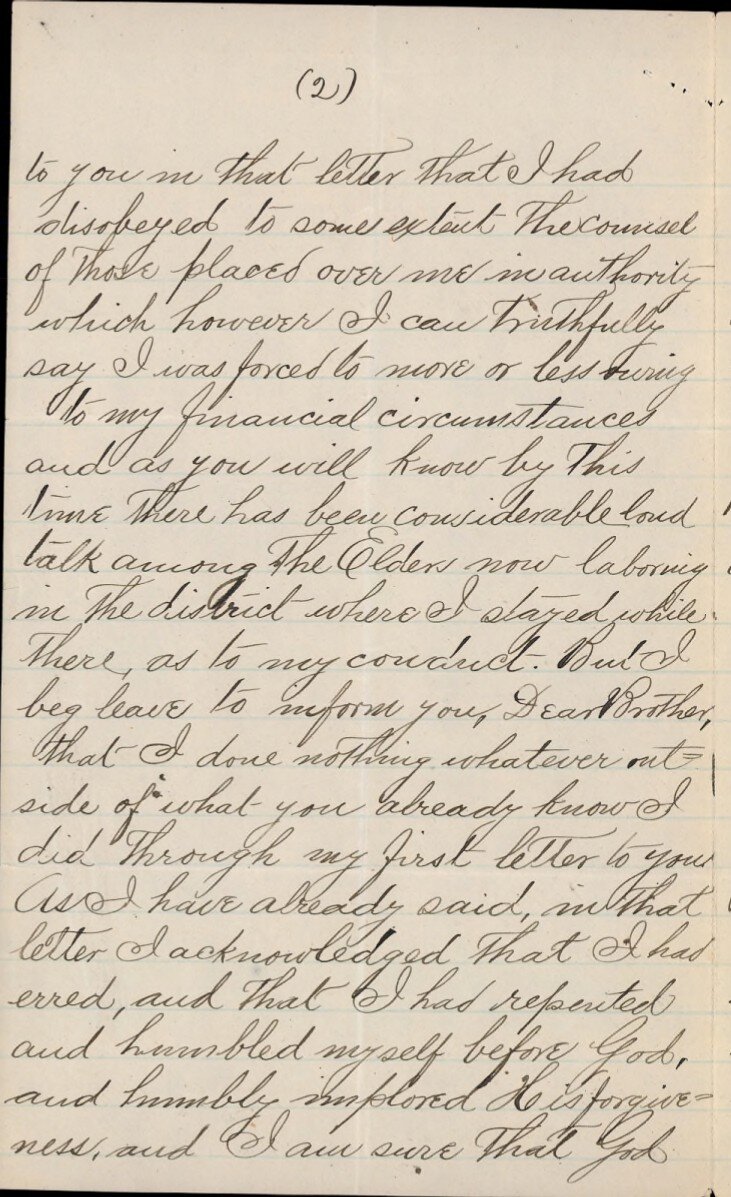 (2)
to you in that letter that I had
disobeyed to some extent the counsel
of those placed over me in authority
which however I can truthfully
say I was forced to more or less owing
to my financial circumstances
and as you will know by this
time there has been considerable loud
talk among the Elders now laboring
in the district where I stayed while
there, as to my conduct. But I
beg leave to inform you, Dear Brother,
that I done nothing whatever out=
side of what you already know I
did through my first letter to you
As I have already said, in that
letter I acknowledged that I had
erred, and that I had repented
and humbled myself before God,
and humbly implored His forgive=
ness, and I am sure that God